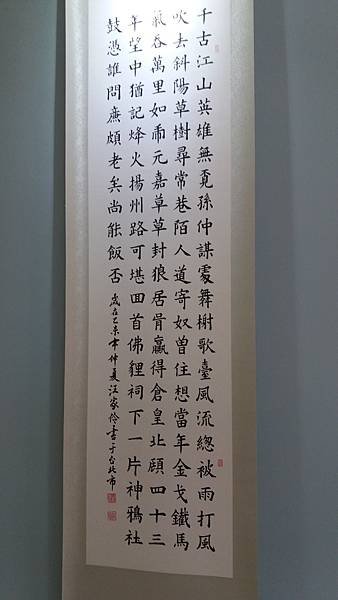 千古江山英雄無覓孫仲謀處舞榭歌臺風流總被雨打風
吹去斜陽草樹尋常巷陌人道寄奴曾住想當年金戈鐵馬
氣吞萬里如乕元嘉草草封狼居胥贏得倉皇北顧四十三
年望中猶記烽火揚州路可堪回首佛貍祠下一片神鴉社
鼓憑誰問廉頗老矣尚能飯否 歲在乙未年仲夏汪家伶書于台北市